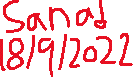 Sanad
18/9/2022